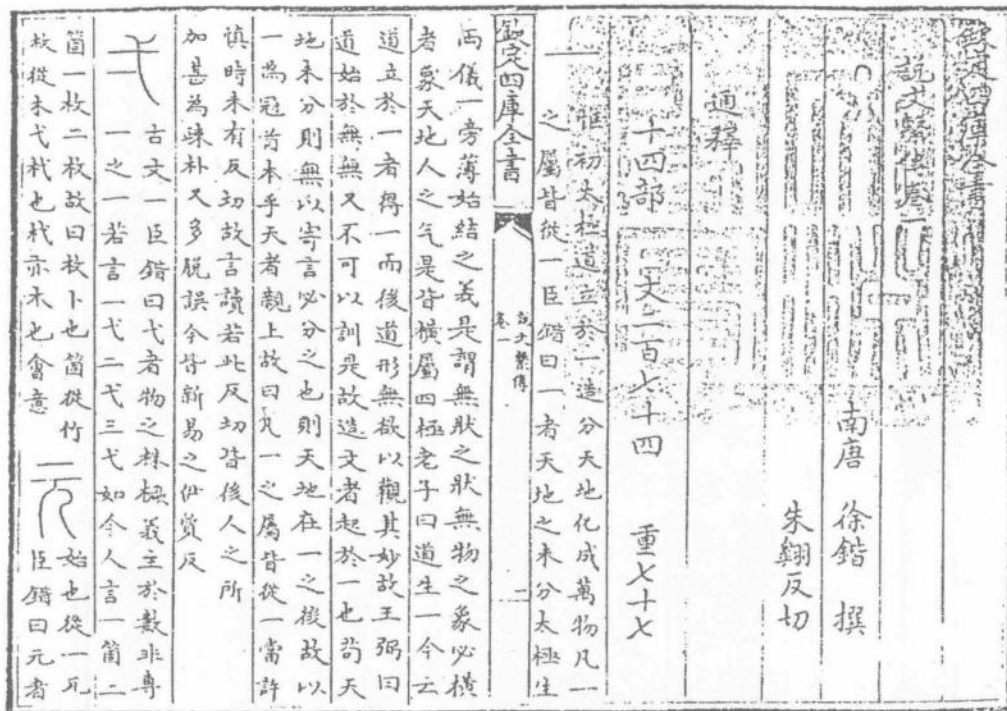 欽定四庫全書
說文繫傳卷一
南唐 徐鍇 撰
朱翺反切
通釋
十四部 文二百七十四 重七十七
一 惟初太極道立於一造分天地化成萬物凡一
之屬皆從一臣鍇曰一者天地之未分太極生
欽定四庫全書
說文繫傳
卷一
二
兩儀一旁薄始結之義是謂無狀之狀無物之象必橫
者象天地人之气是皆橫屬四極老子曰道生一今云
道立於一者得一而後道形無欲以觀其妙故王弼曰
道始於無無又不可以訓是故造文者起於一也茍天
地未分則無以寄言必分之也則天地在一之後故以
一為冠首本乎天者親上故曰凡一之屬皆從一當許
慎時未有反切故言讀若此反切皆後人之所
加甚為疎朴又多脫誤今皆新易之伊質反
弌 古文一臣鍇曰弋者物之株橛義主於數非專
一之一若言一弋二弋三弋如今人言一箇二
箇一枚二枚故曰枚卜也箇從竹
枚從木弋杙也杙亦木也會意
元 始也從一兀
臣鍇曰元者